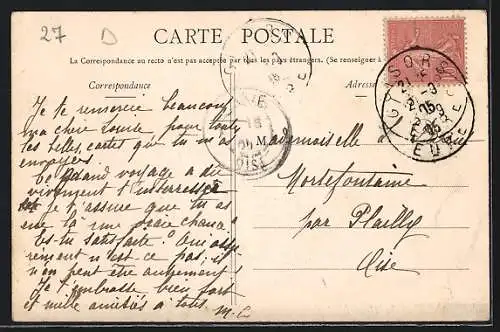 27 D
CARTE POSTALE
La Correspondance au recto n'est pas acceptée par tous les pays étrangers. (Se renseigner à
Correspondance
Adresse
Je te remercie beaucoup,
ma chère Lourde pour toutes
les belles cartes que tu m'as
envoyées.
Ce grand voyage a dû
vivement t'intéresser
je t'assure que tu as
eu là une vraie chance!
Es-tu satisfaite? 
n'est ce pas; il
n'en peut être autrement!
Je t'embrasse bien fort
et mille amitiés à tous. M. L.
Mademoiselle
Mortefontaine
par Plailly
Oise
GISORS
EURE
OISE